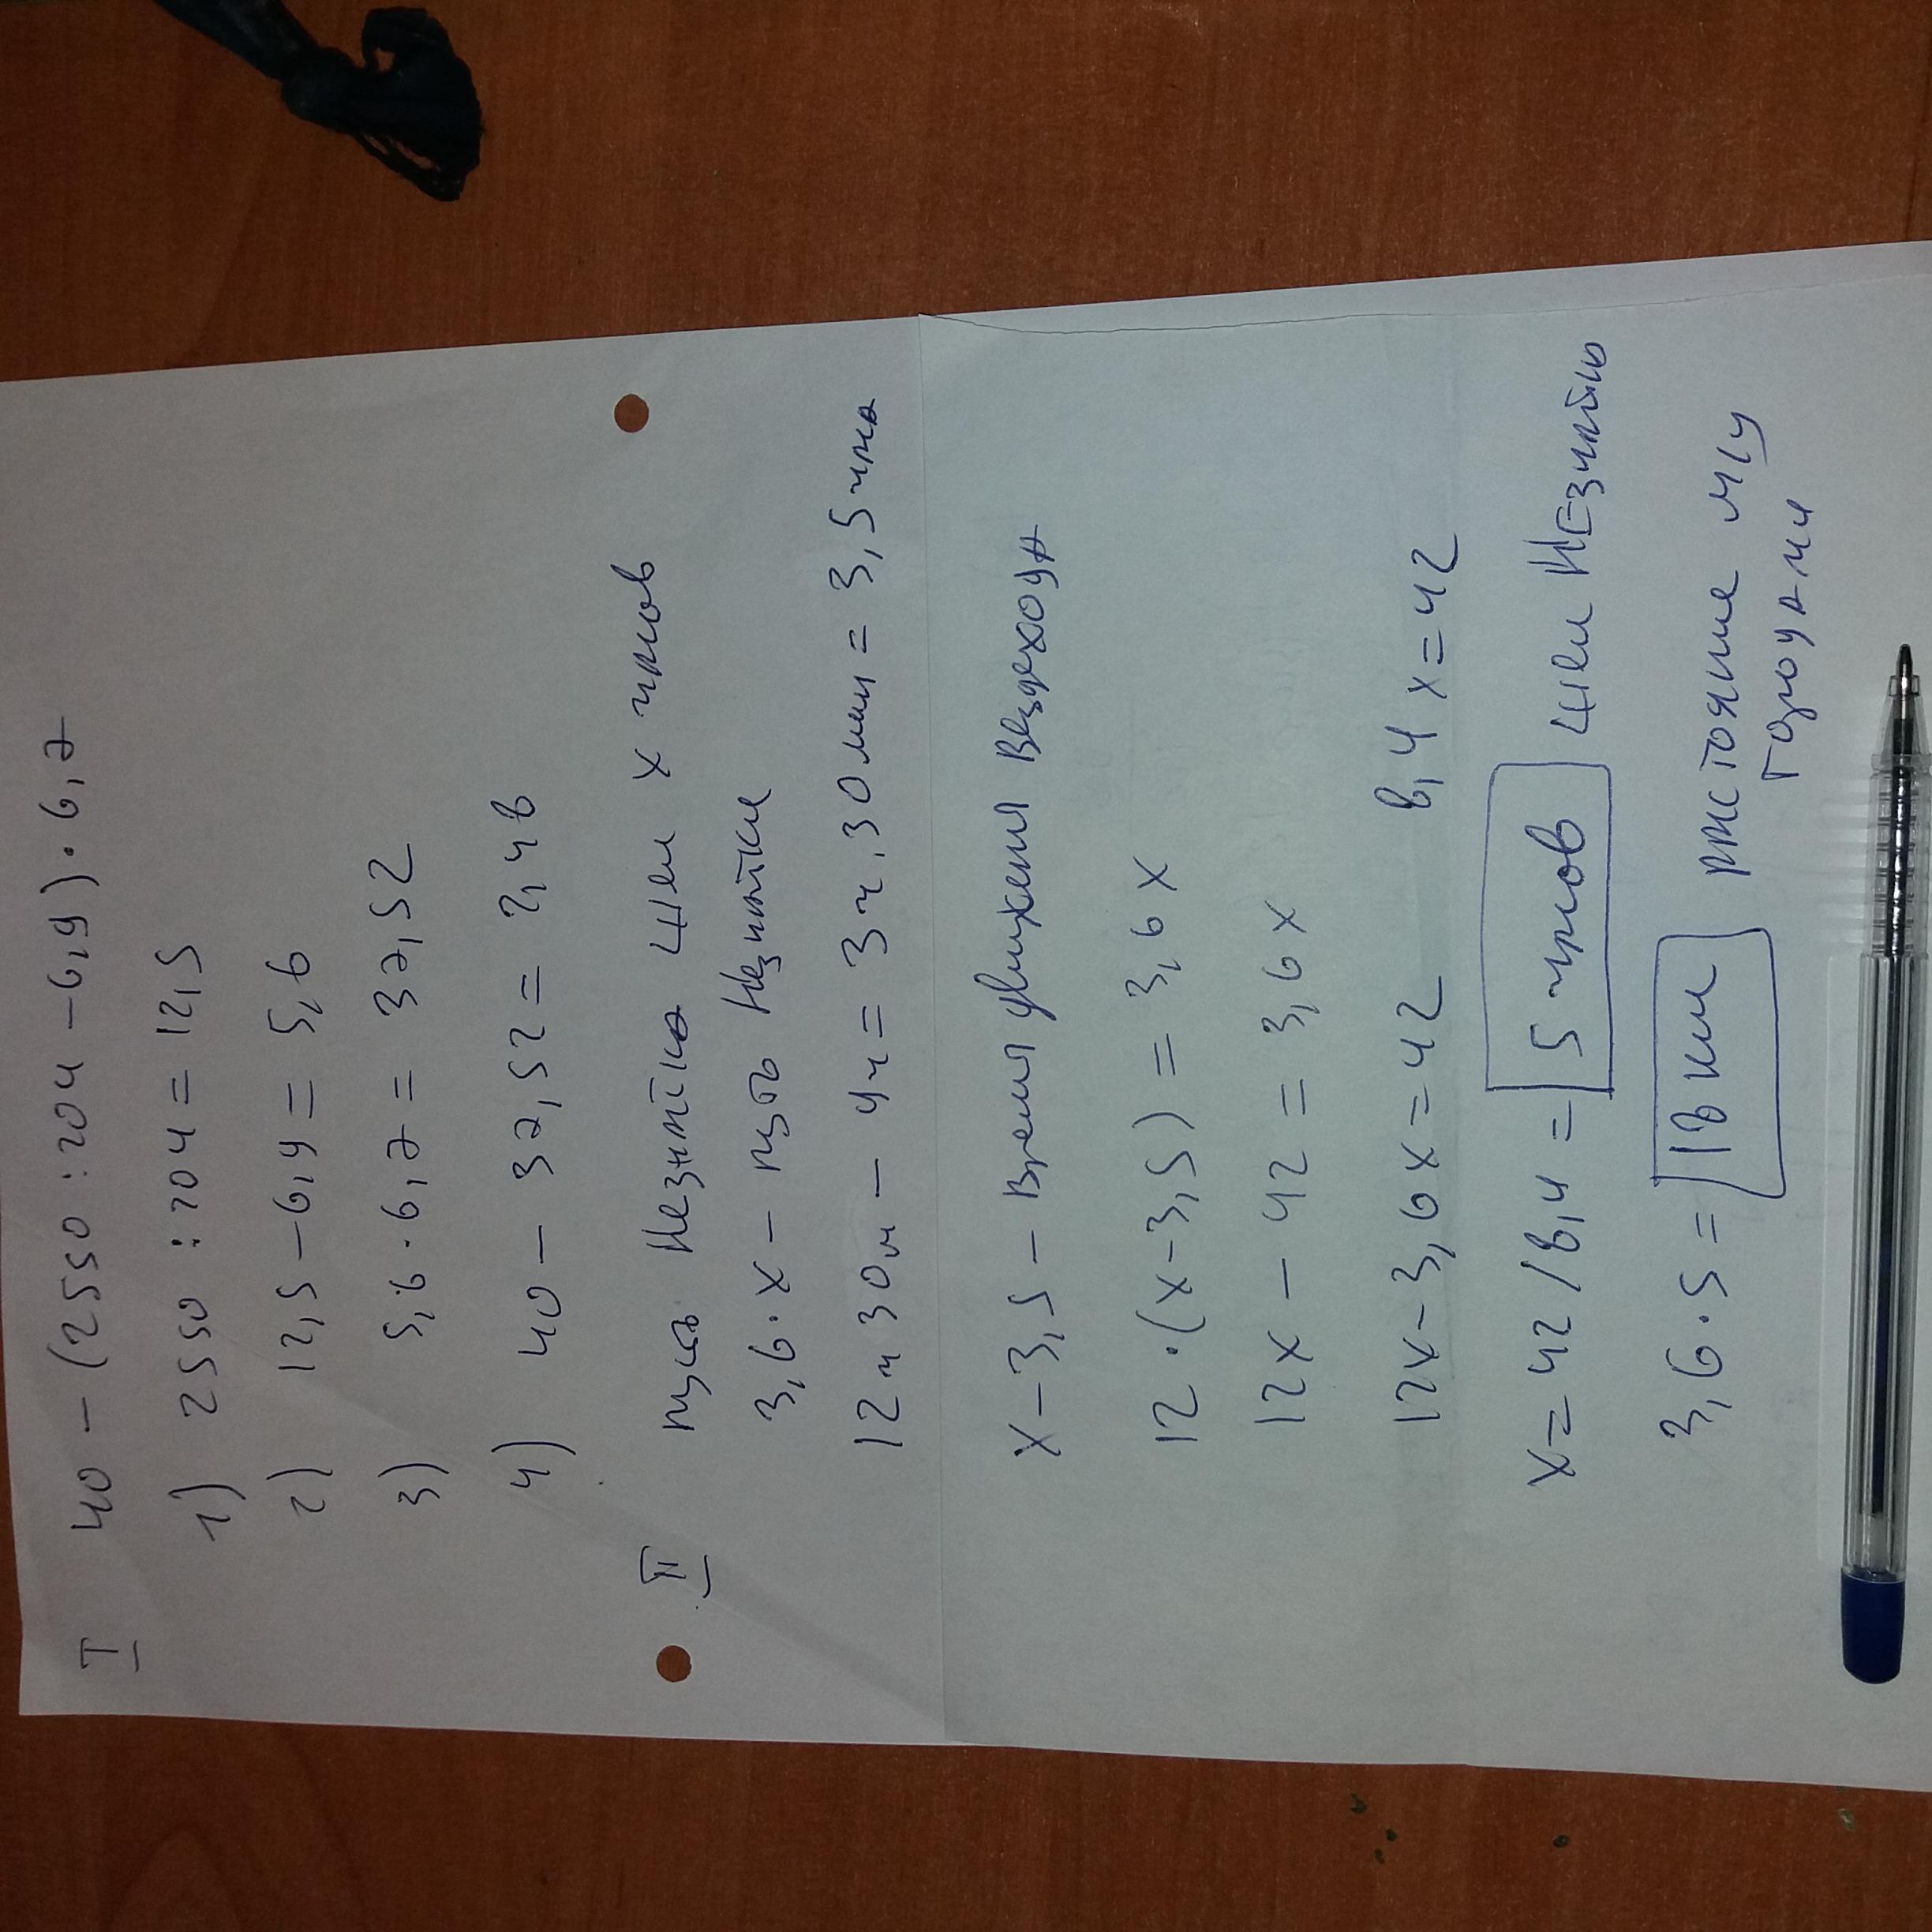 I 40 - (2550 : 204 - 6,9) · 6,7
1) 2550 : 204 = 12,5
2) 12,5 - 6,9 = 5,6
3) 5,6 · 6,7 = 37,52
4) 40 - 37,52 = 2,48
II пусть Незнайка шел x часов
3,6·x - путь Незнайки
12ч30м - 9ч = 3ч.30мин = 3,5 часа
x-3,5 - время движения вездехода
12·(x-3,5) = 3,6x
12x - 42 = 3,6x
12x-3,6x=42 8,4x=42
x=42/8,4 = 5 часов шел Незнайка
3,6·5 = 18 км расстояние м/у
городами